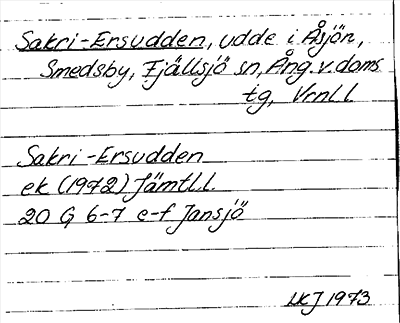 Sakri-Ersudden, udde i Åsjön,
Smedsby, Fjällsjö sn, Ång. v. doms
tg, Vrnl l.
Sakri-Ersudden
ek (1972) Jämtl.l.
20 G 6-7 e-f Jansjö
LKJ 1973